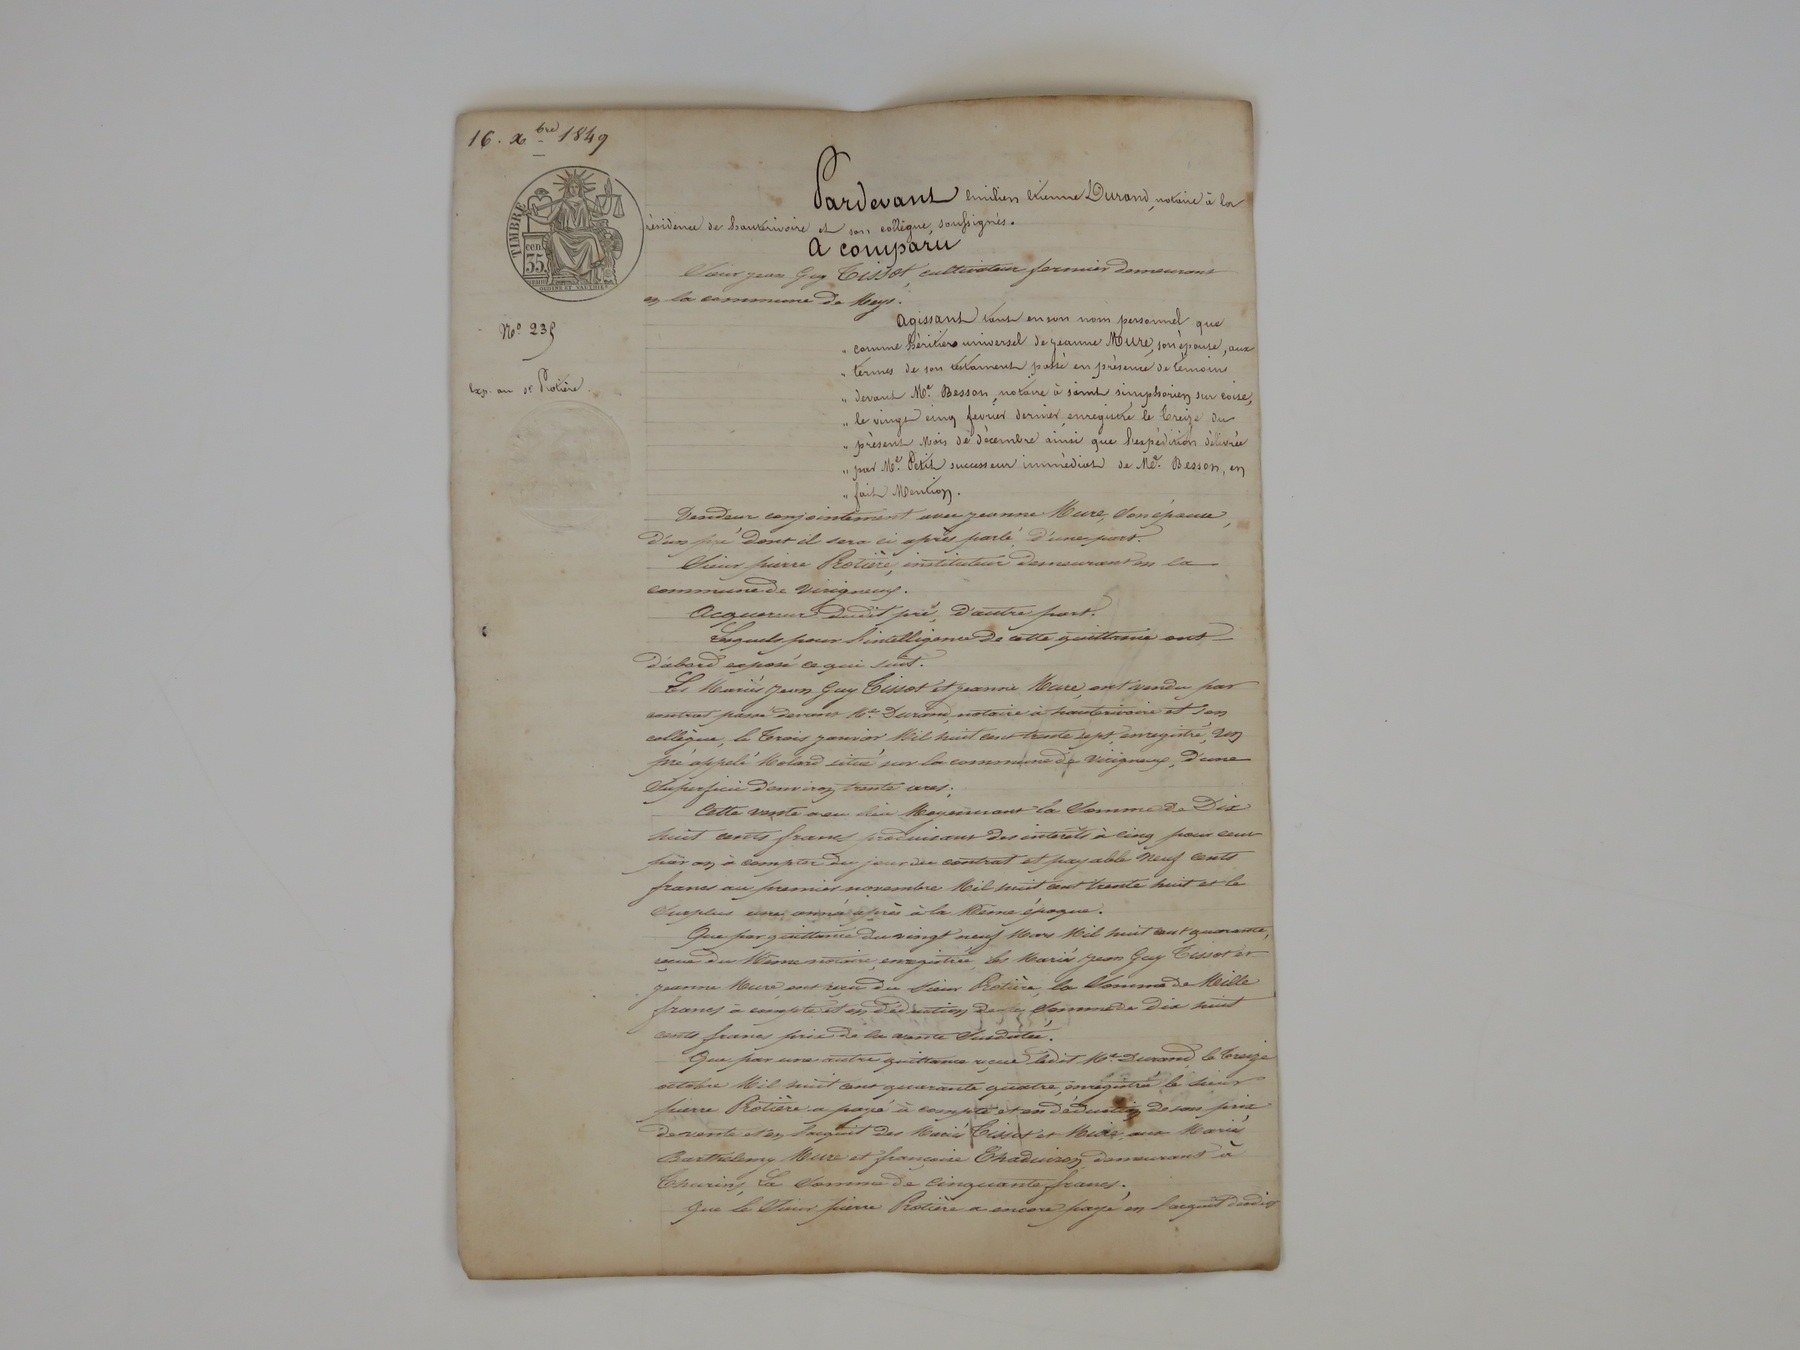 16. xbre 1849
TIMBRE
cen.
35
N.º 235
Exp. au sr Protière
Pardevant Emilien Etienne Durand, notaire à la
résidence de hauterivoire et son collègue, soussignés.
A comparu
Sieur jean Guy Tissot, cultivateur fermier demeurant
en la commune de Meys.
Agissant tant en son nom personnel que
„ comme héritier universel de jeanne Mure, son épouse, aux
„ termes de son testament passé en présence de témoins
„ devant Me. Besson, notaire à saint simphorien sur coise,
„ le vingt cinq fevrier dernier, enregistré le treize du
„ présent Mois de décembre ainsi que l'expédition délivrée
„ par Me. Petit successeur immédiat de Me. Besson, en
„ fait Mention.
Vendeur conjointement avec jeanne Mure, son épouse,
d'un pré dont il sera ci après parlé, d'une part.
Sieur pierre Protière, instituteur demeurant en la
commune de Virigneux.
Acquereur dudit pré, d'autre part.
Lesquels pour l'intelligence de cette quittance ont
d'abord exposé ce qui suit.
Les Mariés jean Guy Tissot et jeanne Mure, ont vendu par
contrat passé devant Me. Durand, notaire à hauterivoire et son
collègue, le trois janvier Mil huit cent trente sept, enregistré, un
pré appelé Molard situé sur la commune de Virigneux, d'une
superficie d'environ trente ares;
Cette vente a eu lieu Moyennant la somme de Dix
huit cents francs produisant des intérêts à cinq pour cent
par an à compter du jour du contrat et payable Neuf cents
francs au premier novembre Mil huit cent trente huit et le
surplus une année après à la Même époque.
Que par quittance du vingt neuf Mars Mil huit cent quarante,
reçue du Même notaire, enregistrée, les Mariés jean Guy Tissot et
jeanne Mure, ont reçu du sieur Protière, la somme de Mille
francs à compte et en déduction de la somme de Dix huit
cents francs prix de la vente susdatée.
Que par une autre quittance reçue ledit Me. Durand, le treize
octobre Mil huit cent quarante quatre, enregistrée, le sieur
pierre Protière a payé à compte et en déduction de son prix
de vente et en l'acquit des Mariés Tissot et Mure, aux Mariés
Barthélemy Mure et françoise demeurant à
Thurins, La somme de cinquante francs.
Que le sieur pierre Protière a encore payé en l'acquit desdits